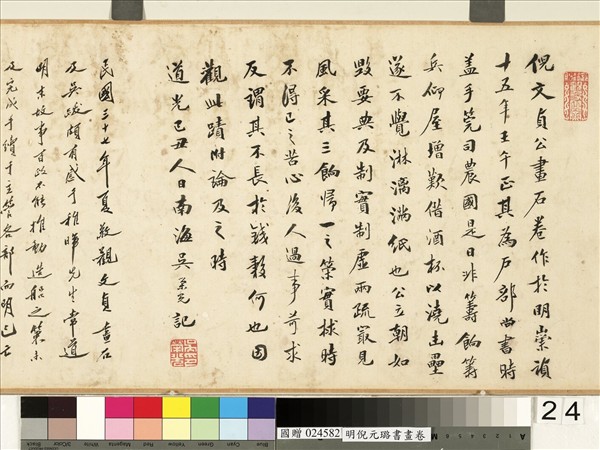 倪文貞公畫石卷作於明崇禎
十五年壬午正其為戶部尚書時
蓋手筦司農國是日非籌餉籌
兵仰屋增歎借酒杯以澆塊壘
遂不覺淋漓滿紙也公立朝如
毀要典及制實制虛兩疏最見
風采其三餉歸一之策實救時
不得已之苦心後人過事苛求
反謂其不長於錢穀何也因
觀此蹟附論及之時
道光己丑人日南海吳榮光記
民國三十七年夏敬觀文貞畫石
及吳跋頗有感于稚暉先生常道
明末故事甘政不能推動造船之策未
及完成手續于主管各部而明已亡
24
國贈 024582 明倪元璐書畫卷
Black
White
Magenta
Red
Yellow
Green
Cyan
Blue
A